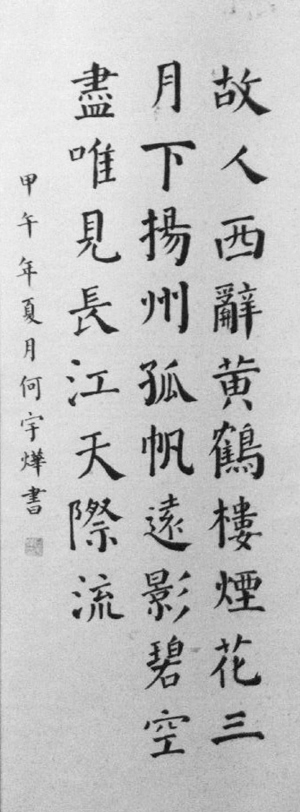 故人西辭黄鶴樓煙花三
月下揚州孤帆遠影碧空
盡唯見長江天際流
甲午年夏月何宇燁書